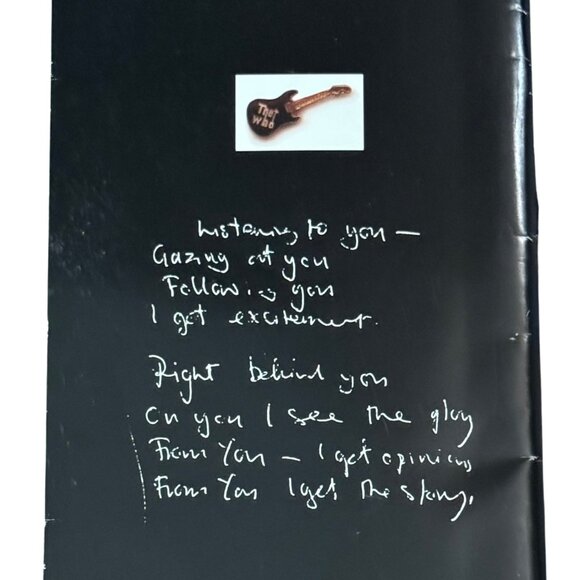 The Who
Listening to you —
Gazing at you
Following you
I get excitement.
Right behind you
On you I see the glory
From You — I get opinions
From You I get the story.